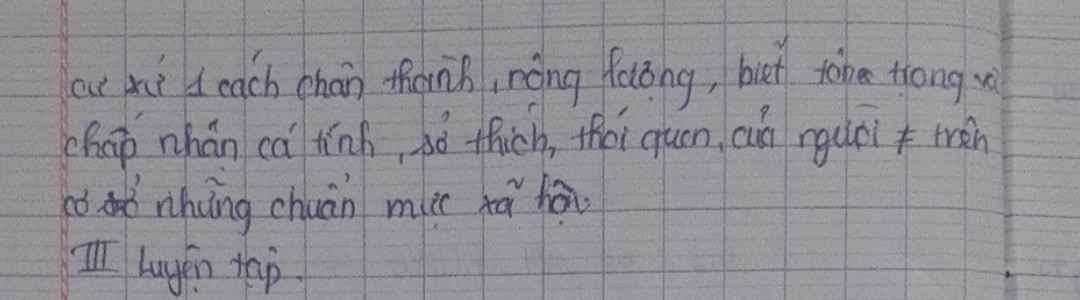 cư xử 1 cách chân thành, rộng lượng, biết tôn trọng và
chấp nhận cá tính, sở thích, thói quen, của người ≠ trên
cơ sở những chuẩn mực xã hội.
III Luyện tập.